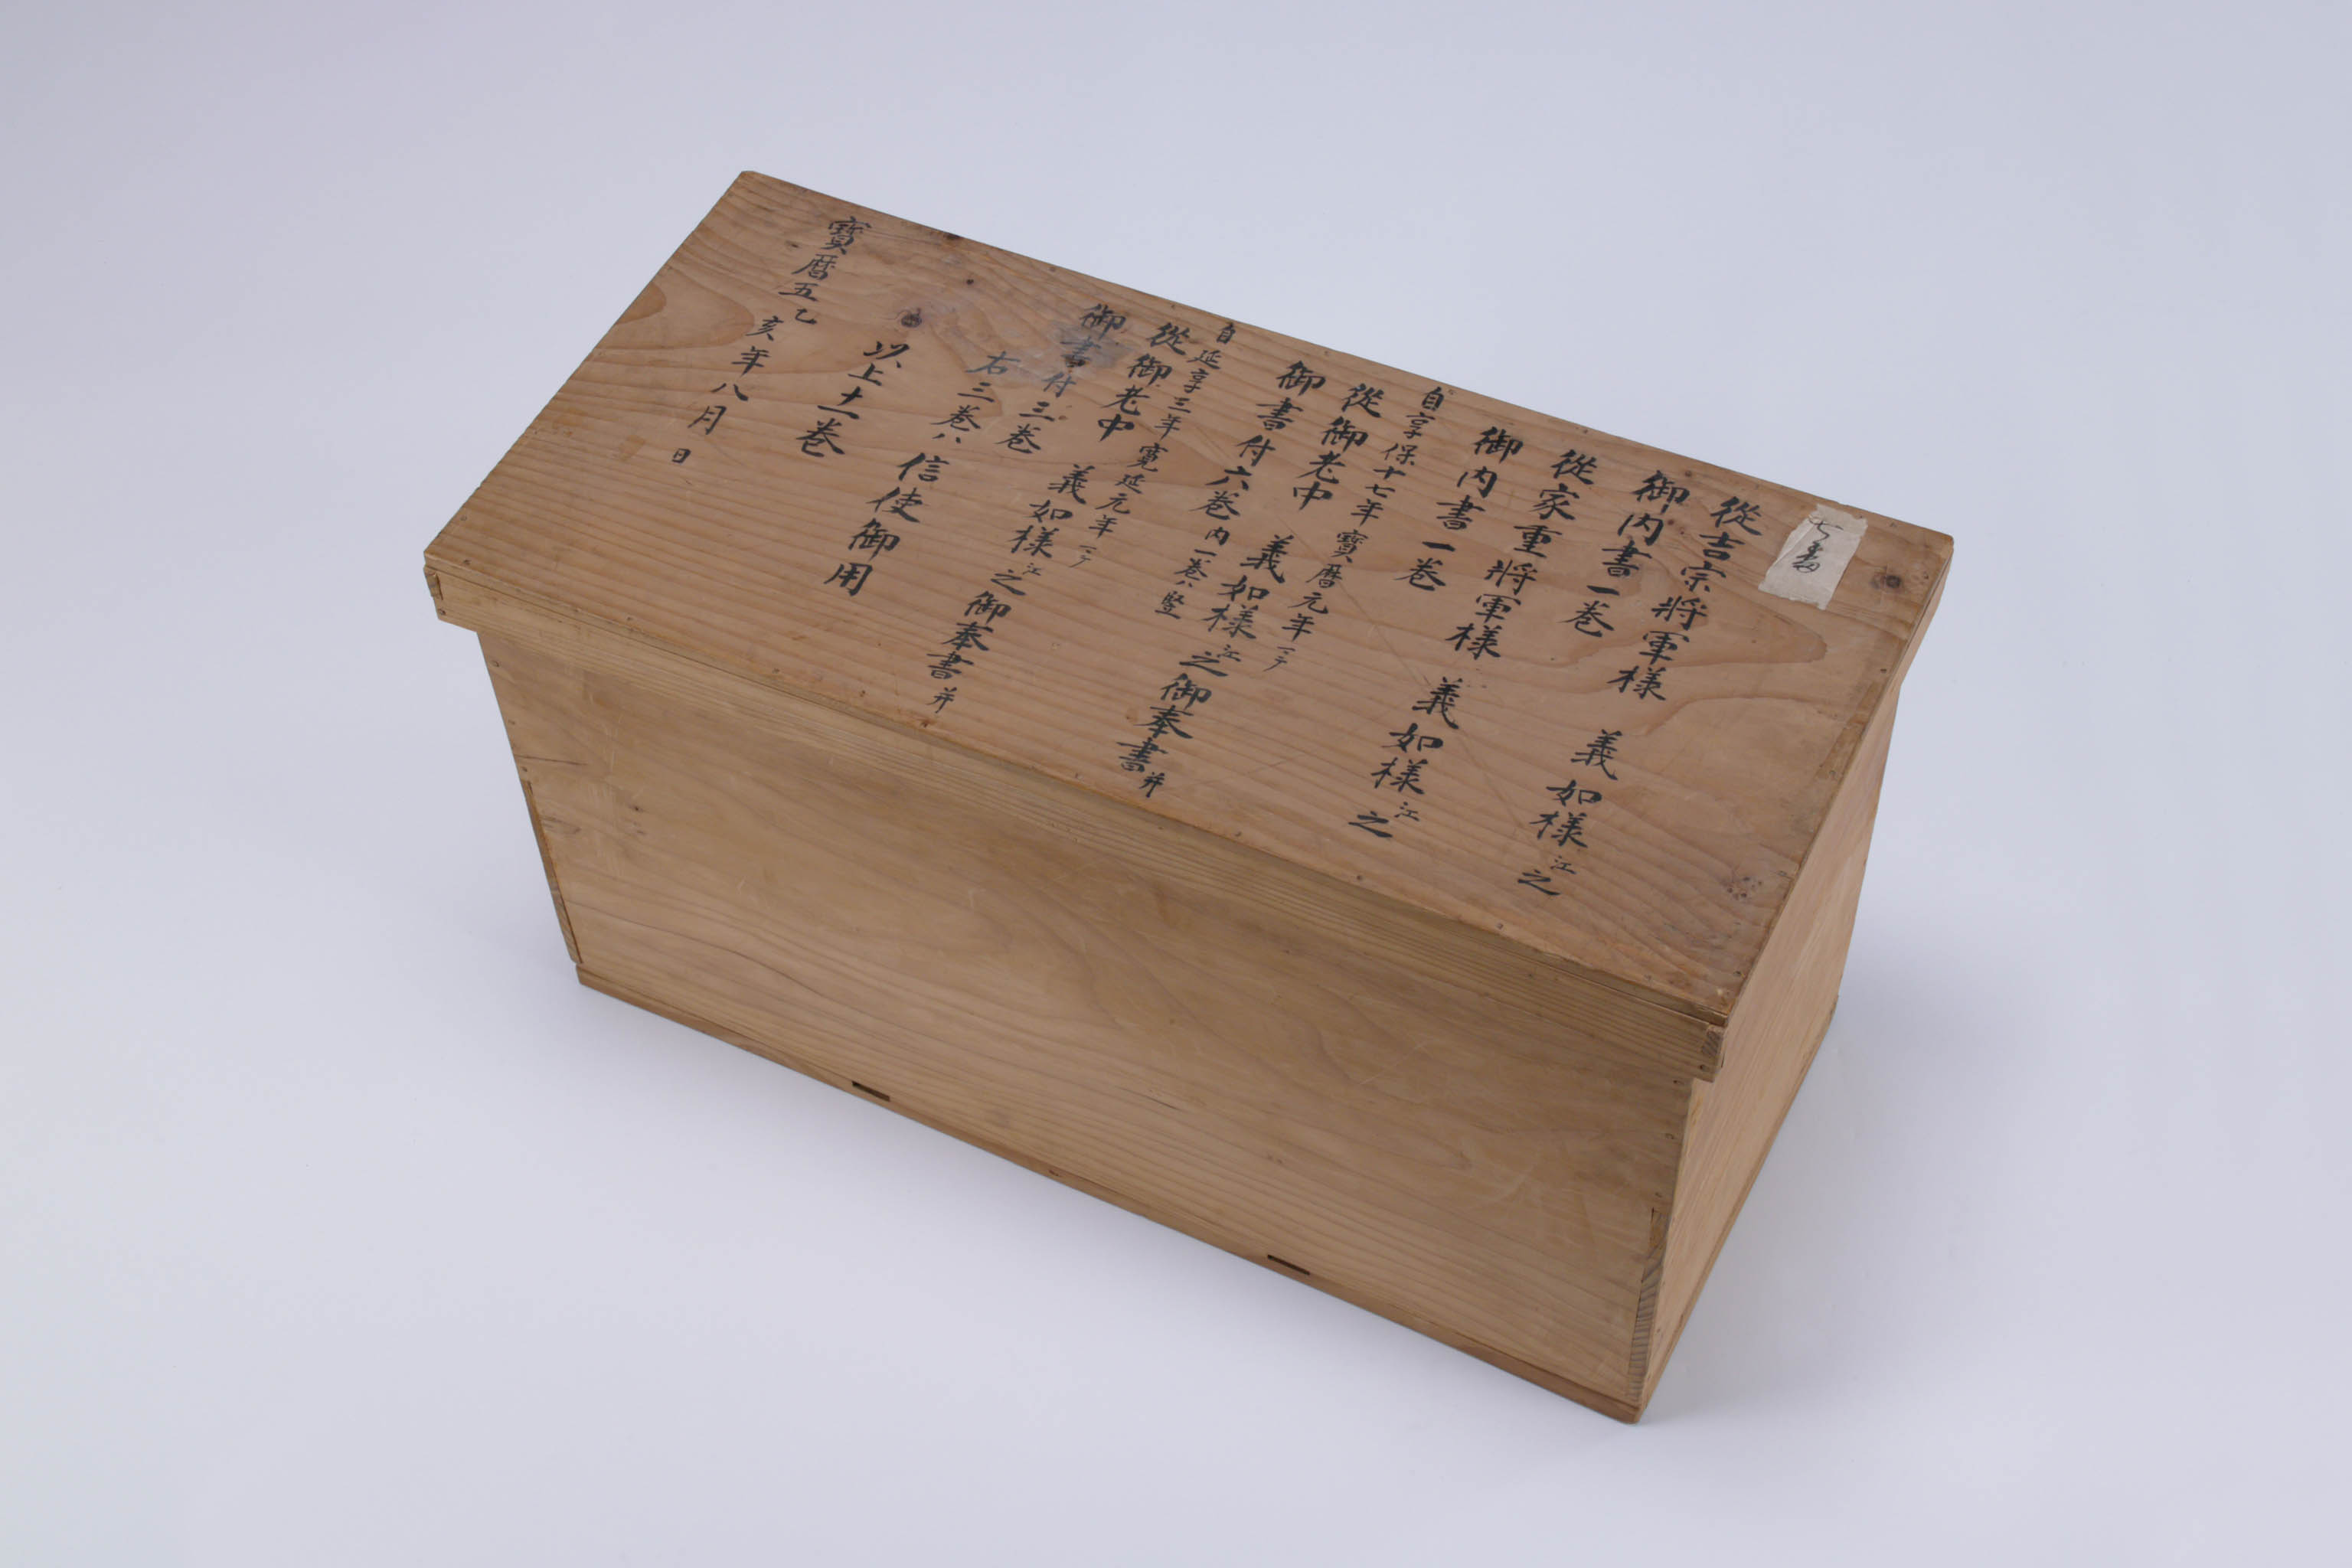 従吉宗将軍様 義如様江之
御内書一巻
従家重将軍様 義如様江之
御内書一巻
自享保十七年寶暦元年ニテ
従御老中 義如様江之御奉書并
御書付六巻内一巻ハ竪
自延享三年寛延元年ニテ
従御老中 義如様江之御奉書并
御書付三巻
右三巻ハ信使御用
以上十一巻
寶暦五乙亥年八月 日